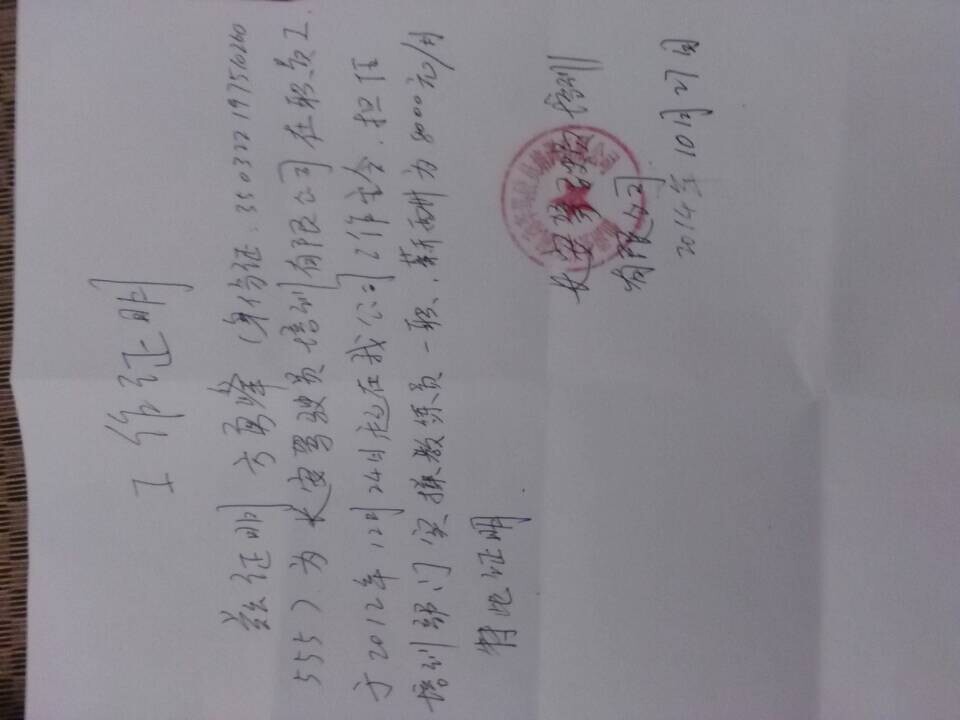 工作证明
兹证明方勇峰(身份证:350322197510260
555)为长安驾驶员培训有限公司在职员工
于2012年12月24日起在我公司工作至今.担任
培训部门实操教练员一职.薪酬为8000元/月
特此证明.
长安驾驶员培训
有限公司
2014年10月27日